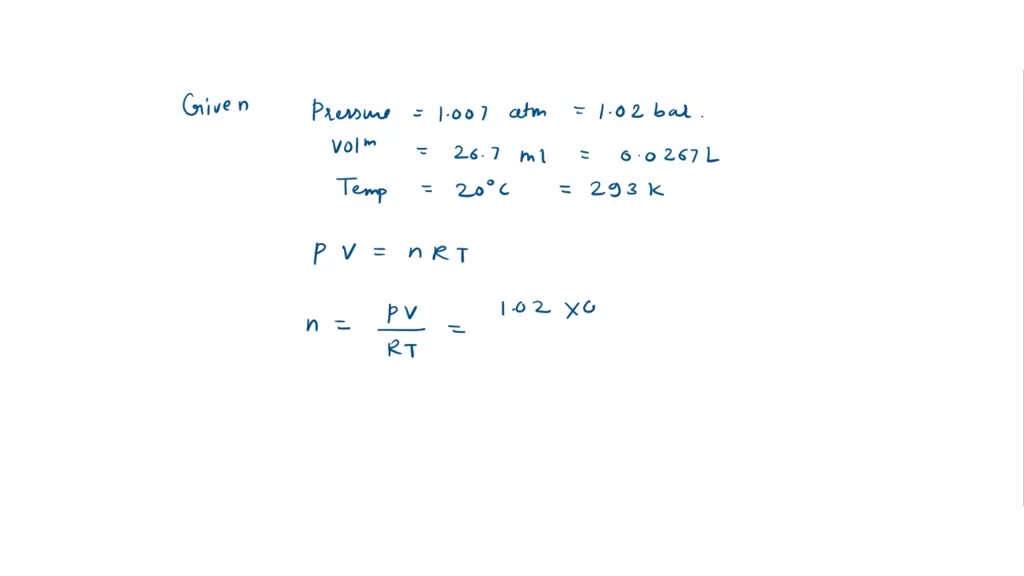 Given Pressure = 1.007 atm = 1.02 bar.
Volm = 26.7 ml = 0.0267L
Temp = 20°C = 293 K
PV = nRT
n = PV/RT = 1.02 x0